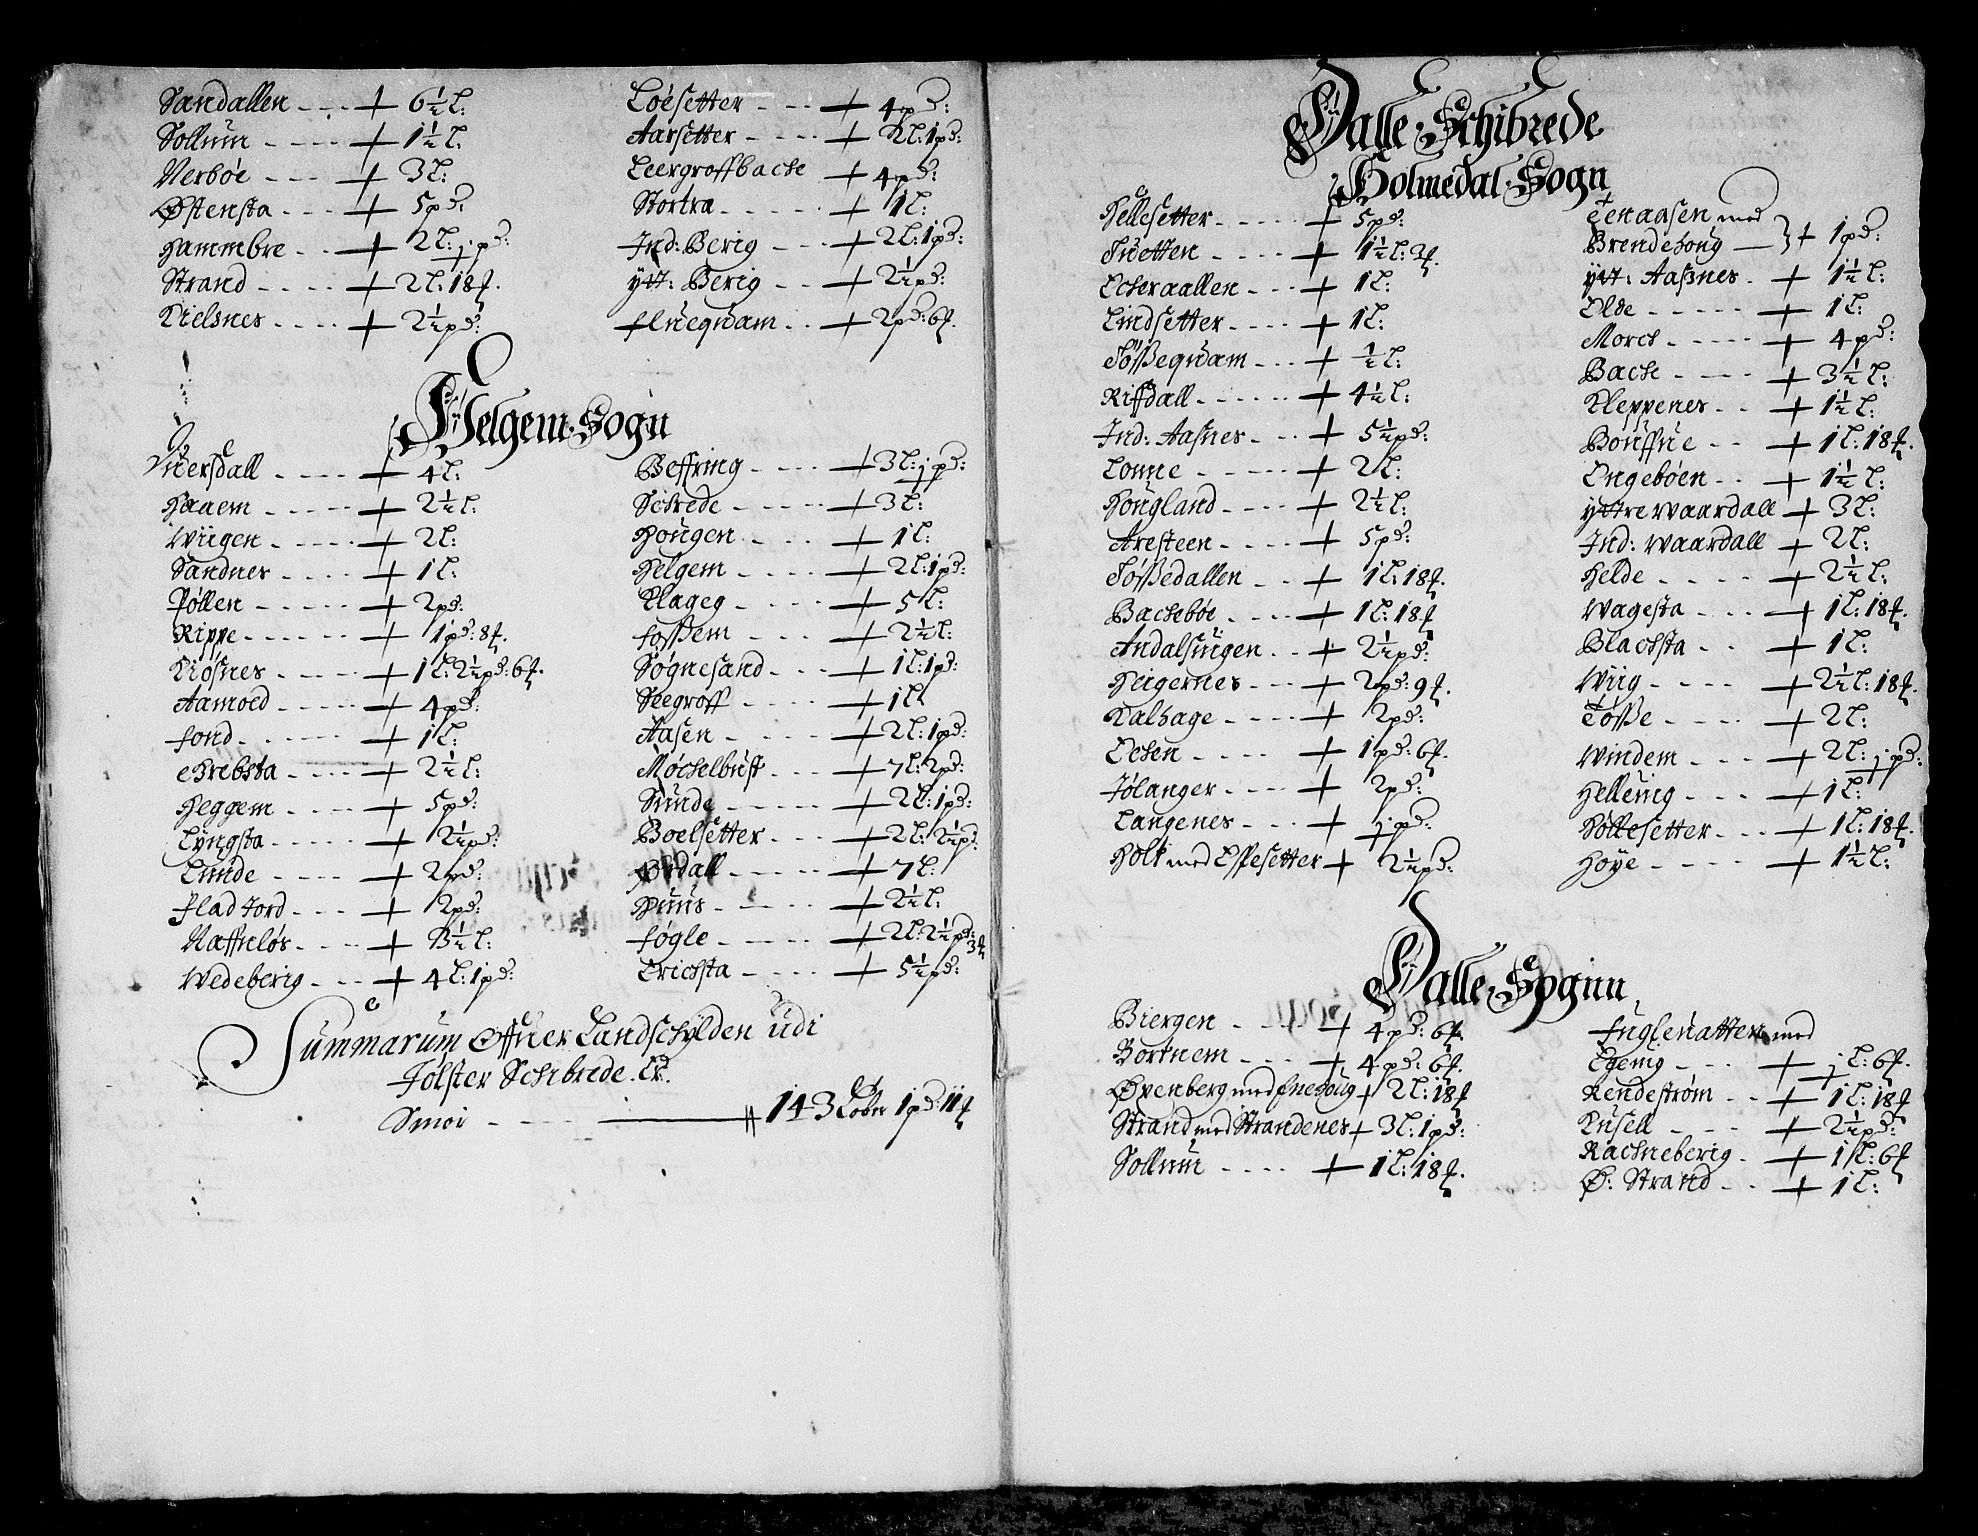 Sandallen - - - + 6½ L:
Sollum - - - - + 1½ L:
Nerbøe - - - + 3 L:
Østensta - - - + 5 pd:
Hammbre - - + 2 L: j pd:
Strand - - - - + 2 L: 18 f.
Kielsnes - - - - + 2½ pd:
Loesetter - - - + 4 pd:
Aarsetter - - - - + 2 L: 1 pd:
Leergroffbache + 4 pd:
Stortra - - - - - + 1 L:
Ind: Berig - - - + 2 L: 1 pd:
ytt: Berig - - - + 2½ pd:
fluequam - - + 2 pd: 6 f.
Helgem Sogn
Viersdall - - - - + 4 L:
Haaem - - - - + 2½ L:
Wiigen - - - - + 2 L:
Sandnes - - - - + 1 L:
Pøllen - - - - + 2 pd:
Rippe - - - - - + 1 pd: 8 f.
Kiøsnes - - - - + 1 L: 2½ pd: 6 f.
Aamoed - - - - + 4 pd:
fond - - - - - + 1 L:
Erebsta - - - - + 2½ L:
Heggem - - - - + 5 pd:
Lyngsta - - - - + 2½ pd:
Lunde - - - - + 2 pd:
flad Jord - - - + 2 pd:
Naffneløs - - - + 3½ L:
Wedeberig - - - + 4 L: 1 pd:
Beffring - - - - + 3 L: j pd:
Schrede - - - - + 3 L:
Hougen - - - - + 1 L:
Helgem - - - - + 2 L: 1 pd:
Klageg - - - - + 5 L:
fossem - - - - + 2½ L:
Søgnesand - - - + 1 L: 1 pd:
Seegroff - - - + 1 L
Aasen - - - - + 2 L: 1 pd:
Møchelbust - - - + 7 L: 2 pd:
Sunde - - - - + 2 L: 1 pd:
Boelsetter - - - + 2 L: 2½ pd:
Ørdall - - - - + 7 L:
Huus - - - - + 2½ L:
føgle - - - - + 2 L: 2½ pd: 3 f
Erichsta - - - - + 5½ pd:
Summarum Offuer Landschylden udi
Jølster Schibrede. Er.
Smør - - - - 143 Lober 1 pd: 11 f
Dalle Schibrede
Holmedal Sogn
Hellesetter - - - - - + 5 pd:
Tuetten - - - - + 1½ L: 3 f.
Echeraallen - - - + 1 L:
Lindsetter - - - - + 1 L:
Tøssequam - - - + ½ L:
Riffdall - - - - - + 4½ L:
Ind: Aasnes - - - + 5½ pd:
Lonne - - - - + 2 L:
Hougland - - - - + 2½ L:
Aresteen - - - - + 5 pd:
Tøssedallen - - - + 1 L: 18 f.
Bachebøe - - - - + 1 L: 18 f
Andalsuigen - - + 2½ pd:
Heigernes - - - + 2 pd: 9 f.
Kalhage - - - - + 2 pd:
Echen - - - - + 1 pd: 6 f.
Jølanger - - - - + 2 pd:
Langenes - - - + j pd:
Holt med Espesetter + 2½ pd:
Tenaasen med
Brendehoug — } + 1 pd:
ytt: Aasnes - + 1½ L:
Olde - - - - - + 1 L:
Morch - - - - - + 4 pd:
Bache - - - - + 3½ L:
Kleppenes - - + 1½ L:
Bouffue - - + 1 L: 18 f.
Engebøen - - + 1½ L:
yttre Waardall + 3 L:
Ind: Waardall + 2 L:
Helde - - - - + 2½ L:
Wagesta - - - + 1 L: 18 f.
Blachsta - - + 1 L:
Wiig - - - - + 2½ L: 18 f.
Tøsse - - - - + 2 L:
Windem - - - + 2 L: j pd:
Helleuig - - - + 1 L:
Hollesetter - - - + 1 L: 18 f.
Høye - - - - + 1½ L:
Dalle Sognn
Biergen - - - - + 4 pd: 6 f.
Bortnem - - - + 4 pd: 6 f.
Øvenberg med fnehoug + 2 L: 18 f
Strand med Strandenes + 3 L: 1 pd:
Sollum - - - - + 1 L: 18 f.
fuglenatten med
Egenig - - - - + j L: 6 f.
Rendestrøm - - + 1 L: 18 f
Kusell - - - - + 2½ pd:
Rachneberig - + 1 L: 6 f
Ø: Strand - - + 1 L: